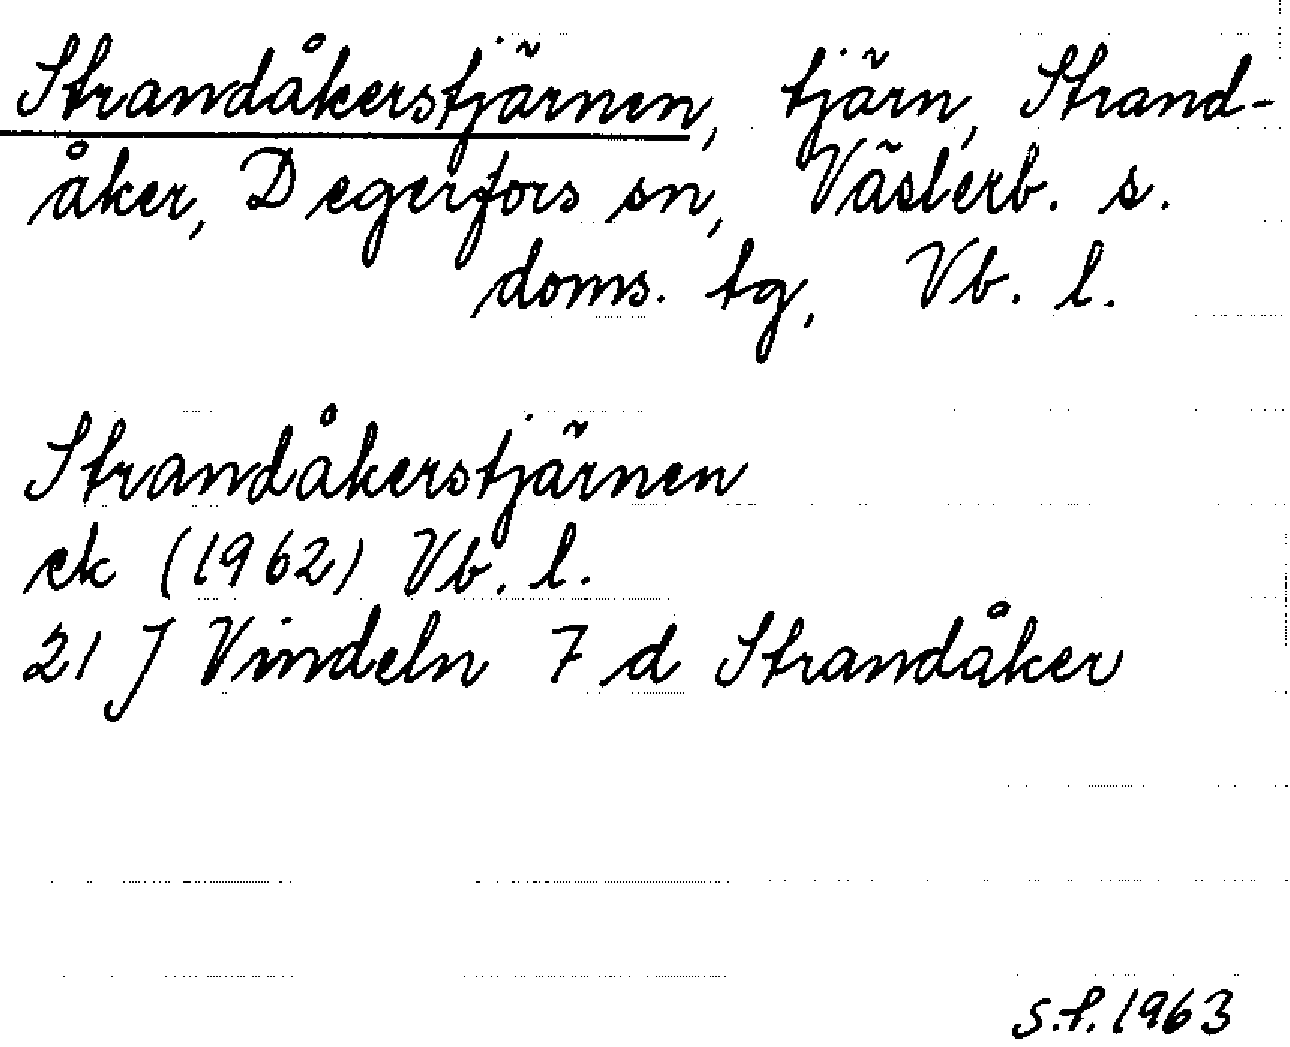 Strandåkerstjärnen, tjärn, Strand-
åker, Degerfors sn, Västerb. s.
doms. tg, Vb. l.
Strandåkerstjärnen
ek (1962) Vb. l.
21 J Vindeln 7 d Strandåker
s.f. 1963